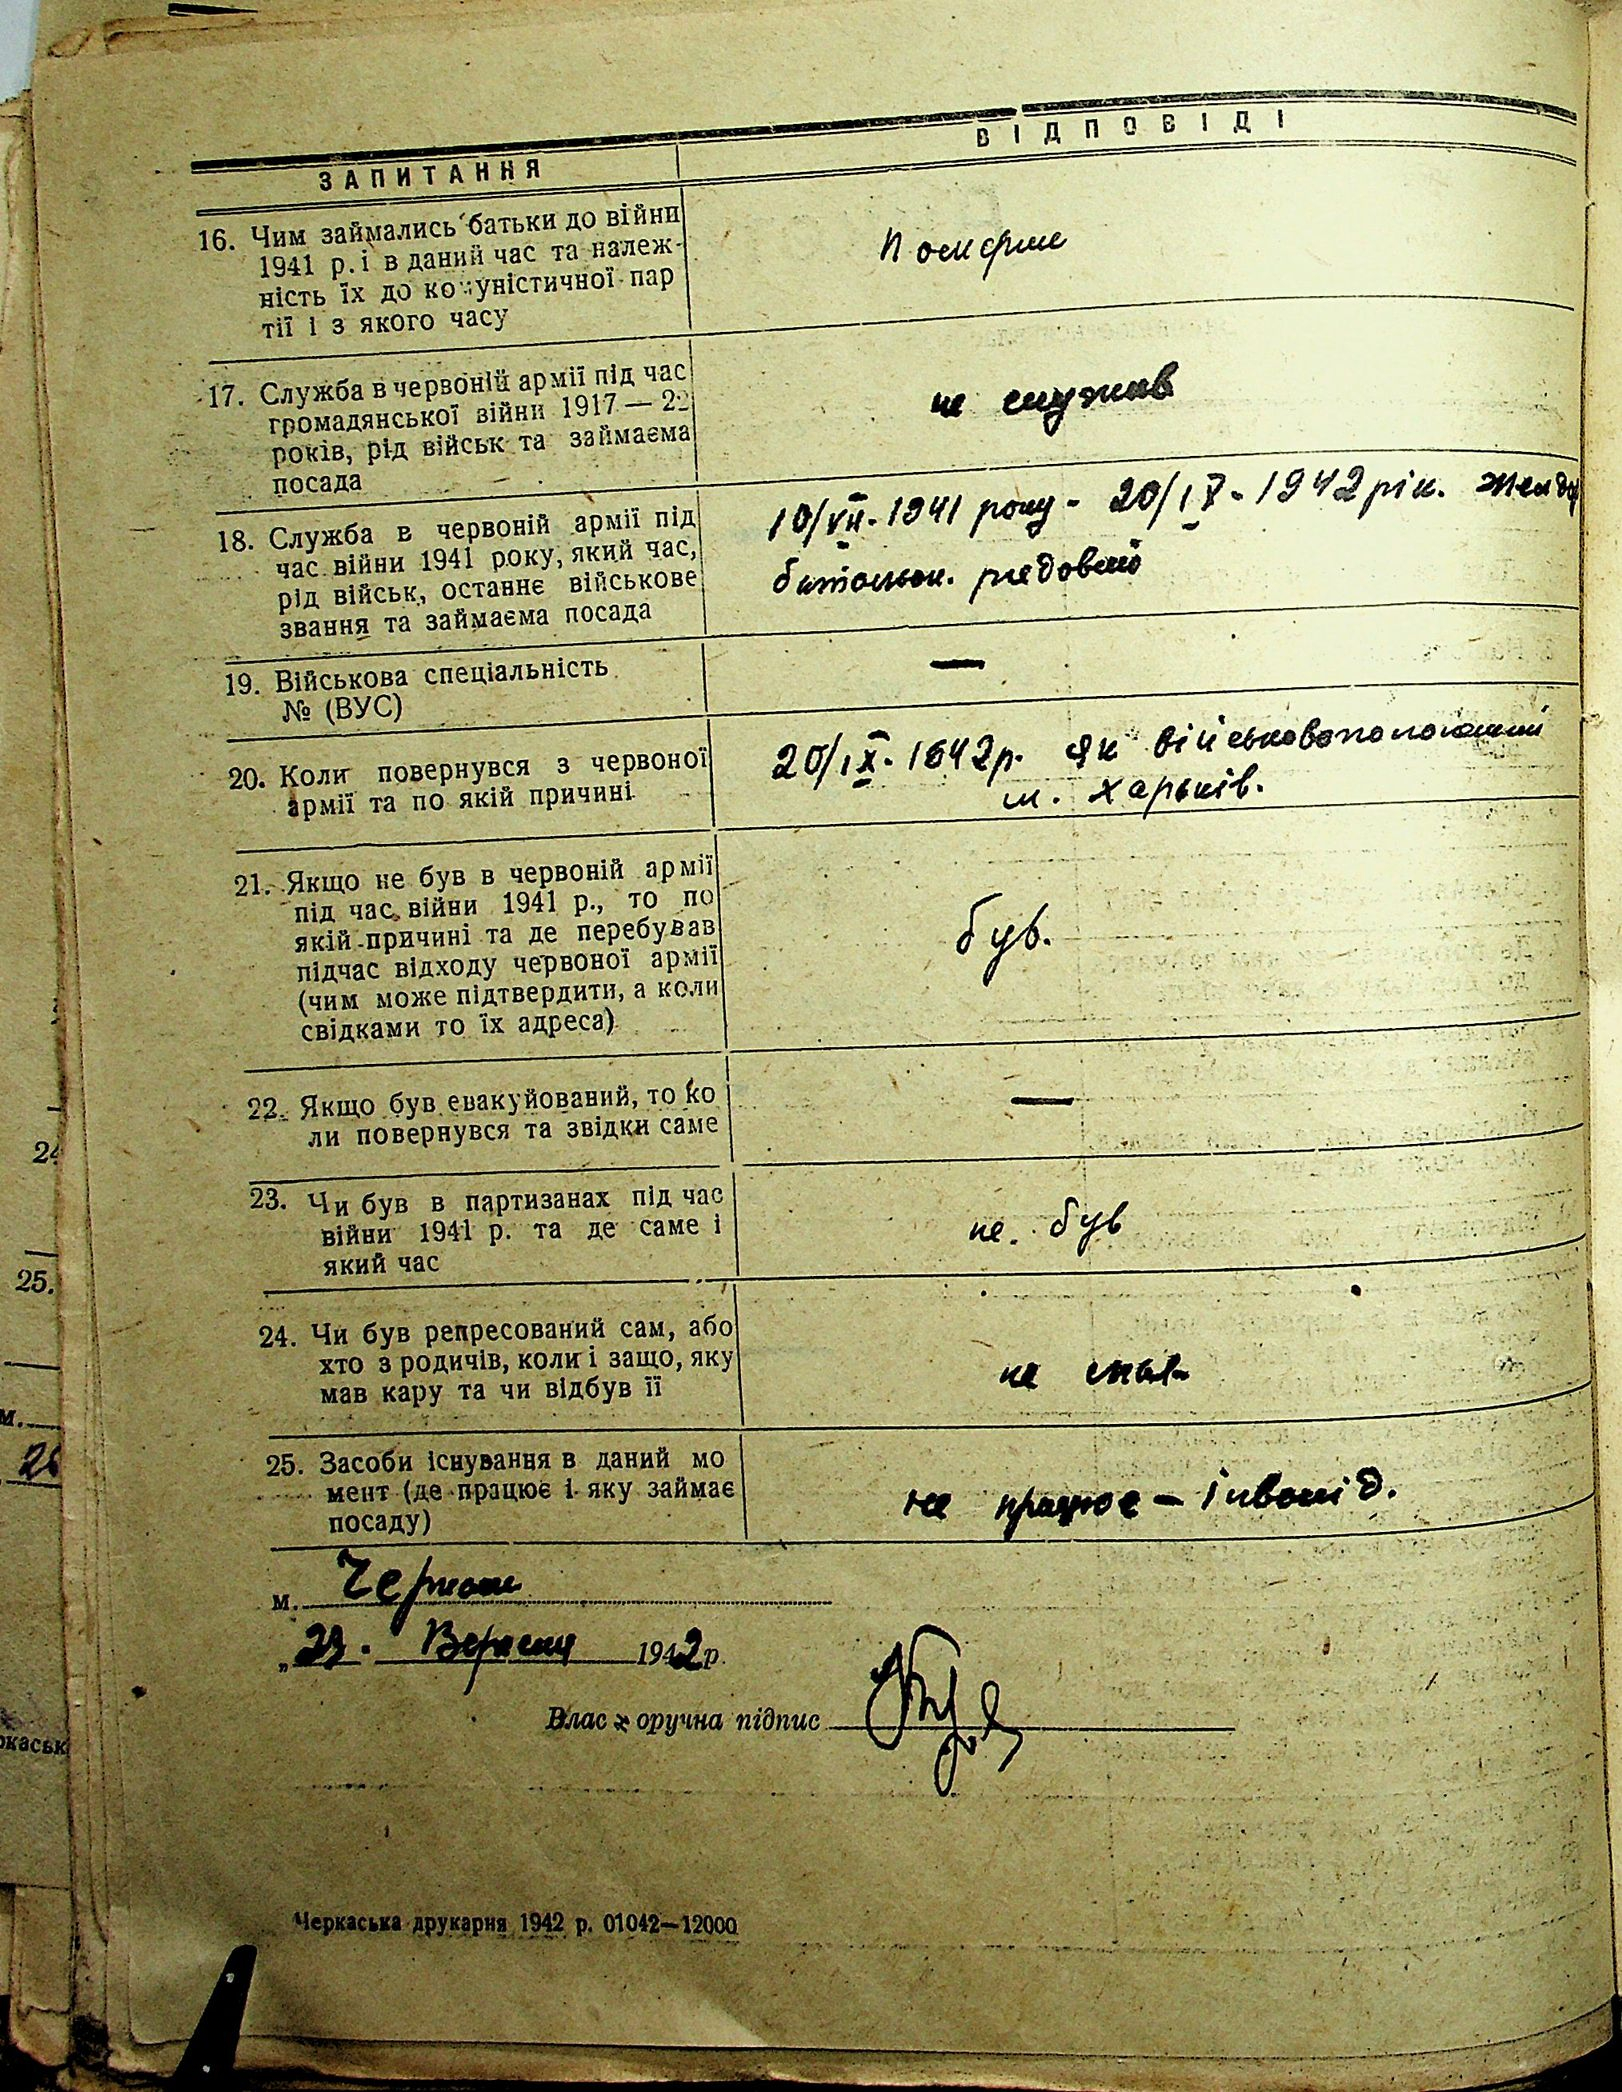 ЗАПИТАННЯ
ВІДПОВІДІ
16. Чим займались батьки до війни
1941 р. і в даний час та належ-
ність їх до комуністичної пар
тії і з якого часу
Померли
17. Служба в червоній армії під час
громадянської війни 1917—22
років, рід військ та займаєма
посада
не служив
18. Служба в червоній армії під
час війни 1941 року, який час,
рід військ, останнє військове
звання та займаєма посада
10/VII. 1941 року - 20/IX. 1942 рік.
батальон. рядовий
19. Військова спеціальність
№ (ВУС)
—
20. Коли повернувся з червоної
армії та по якій причині
20/IX. 1942 р. як військовополонений
м. Харьків.
21. Якщо не був в червоній армії
під час війни 1941 р., то по
якій причині та де перебував
підчас відходу червоної армії
(чим може підтвердити, а коли
свідками то їх адреса)
був.
22. Якщо був евакуйований, то ко
ли повернувся та звідки саме
—
23. Чи був в партизанах під час
війни 1941 р. та де саме і
який час
не. був
24. Чи був репресований сам, або
хто з родичів, коли і защо, яку
мав кару та чи відбув її
не
25. Засоби існування в даний мо
мент (де працює і яку займає
посаду)
не працює - інвалід.
м. Черкаси
„29. Вересня 1942 р.
Власноручна підпис
Черкаська друкарня 1942 р. 01042—12000
24
25.
м.
26
ркаськ